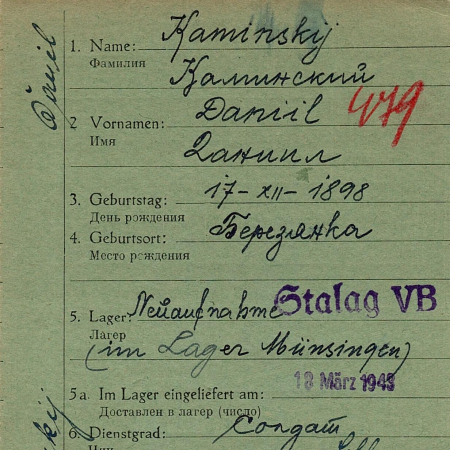 Kaminskij
1. Name:
Фамилия
Каминский
Daniil
479
2 Vornamen:
Имя
Даниил
3. Geburtstag: 17-XII-1898
День рождения
4. Geburtsort: Березянка
Место рождения
5. Lager: Neuaufnahme Stalag VB
Лагерь
(im Lager Münsingen)
18 März 1943
5a. Im Lager eingeliefert am:
Доставлен в лагер (число)
6. Dienstgrad: Солдат
Чин